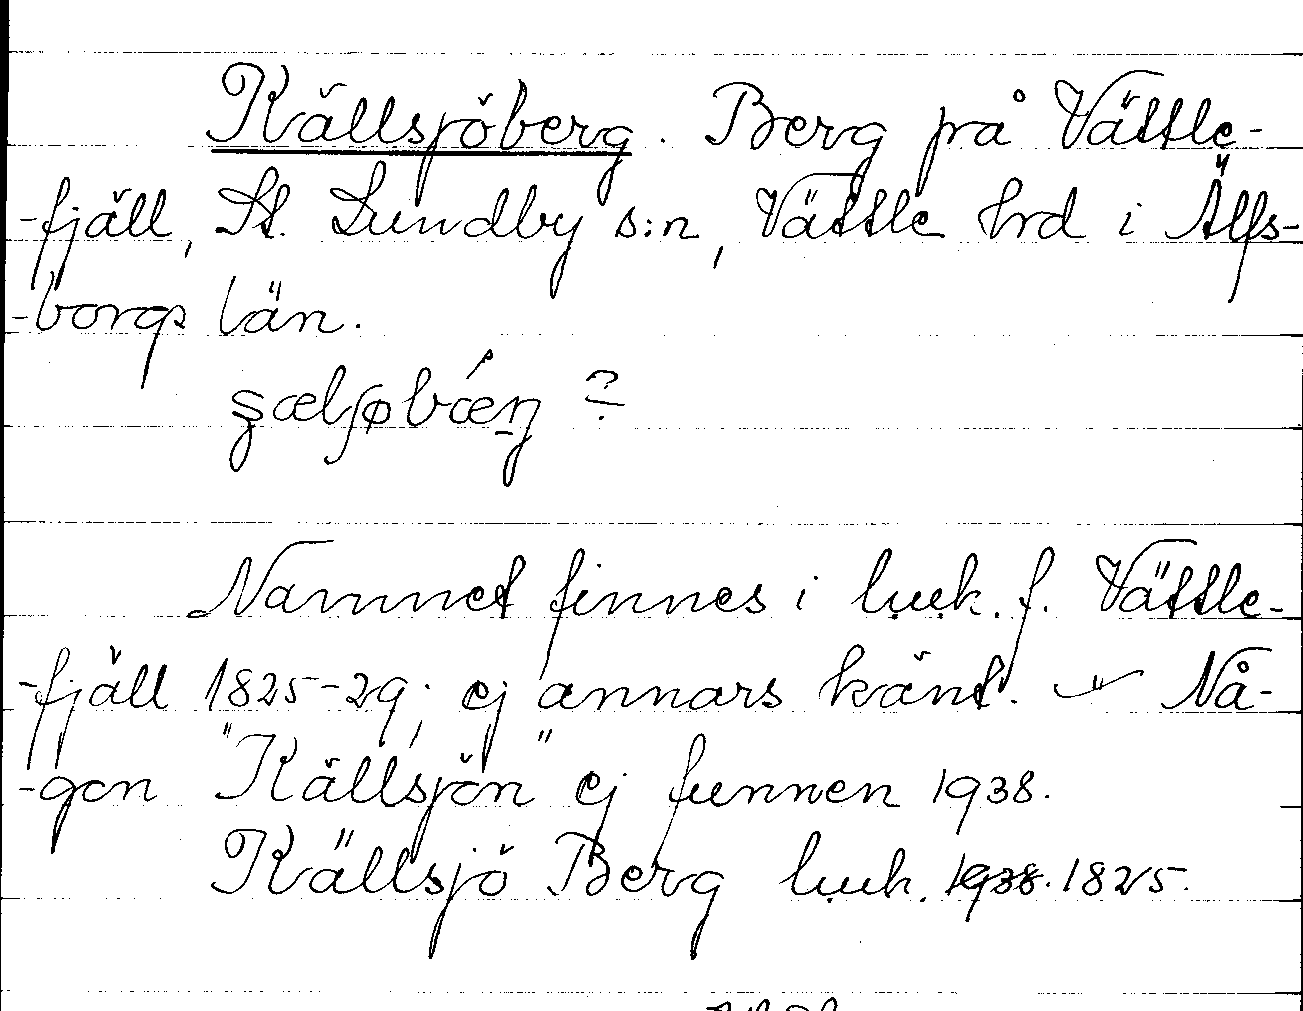 Källsjöberg. Berg på Vättle-
-fjäll, St. Lundby s:n, Vättle hrd i Älfs-
-borgs län.
Namnet finnes i l.u.k. f. Vättle-
-fjäll 1825-29; ej annars känt. Nå-
-gon "Källsjön" ej funnen 1938.
Källsjö Berg l.u.k. 1938. 1825.